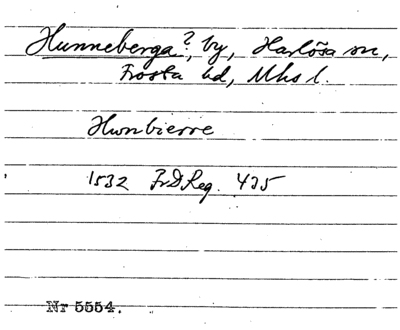 Hunneberga?, by, Harlösa sn,
Frosta hd, Mhs l.
Hwnbierre
1532 Fr D Reg. 435
Nr 5554.